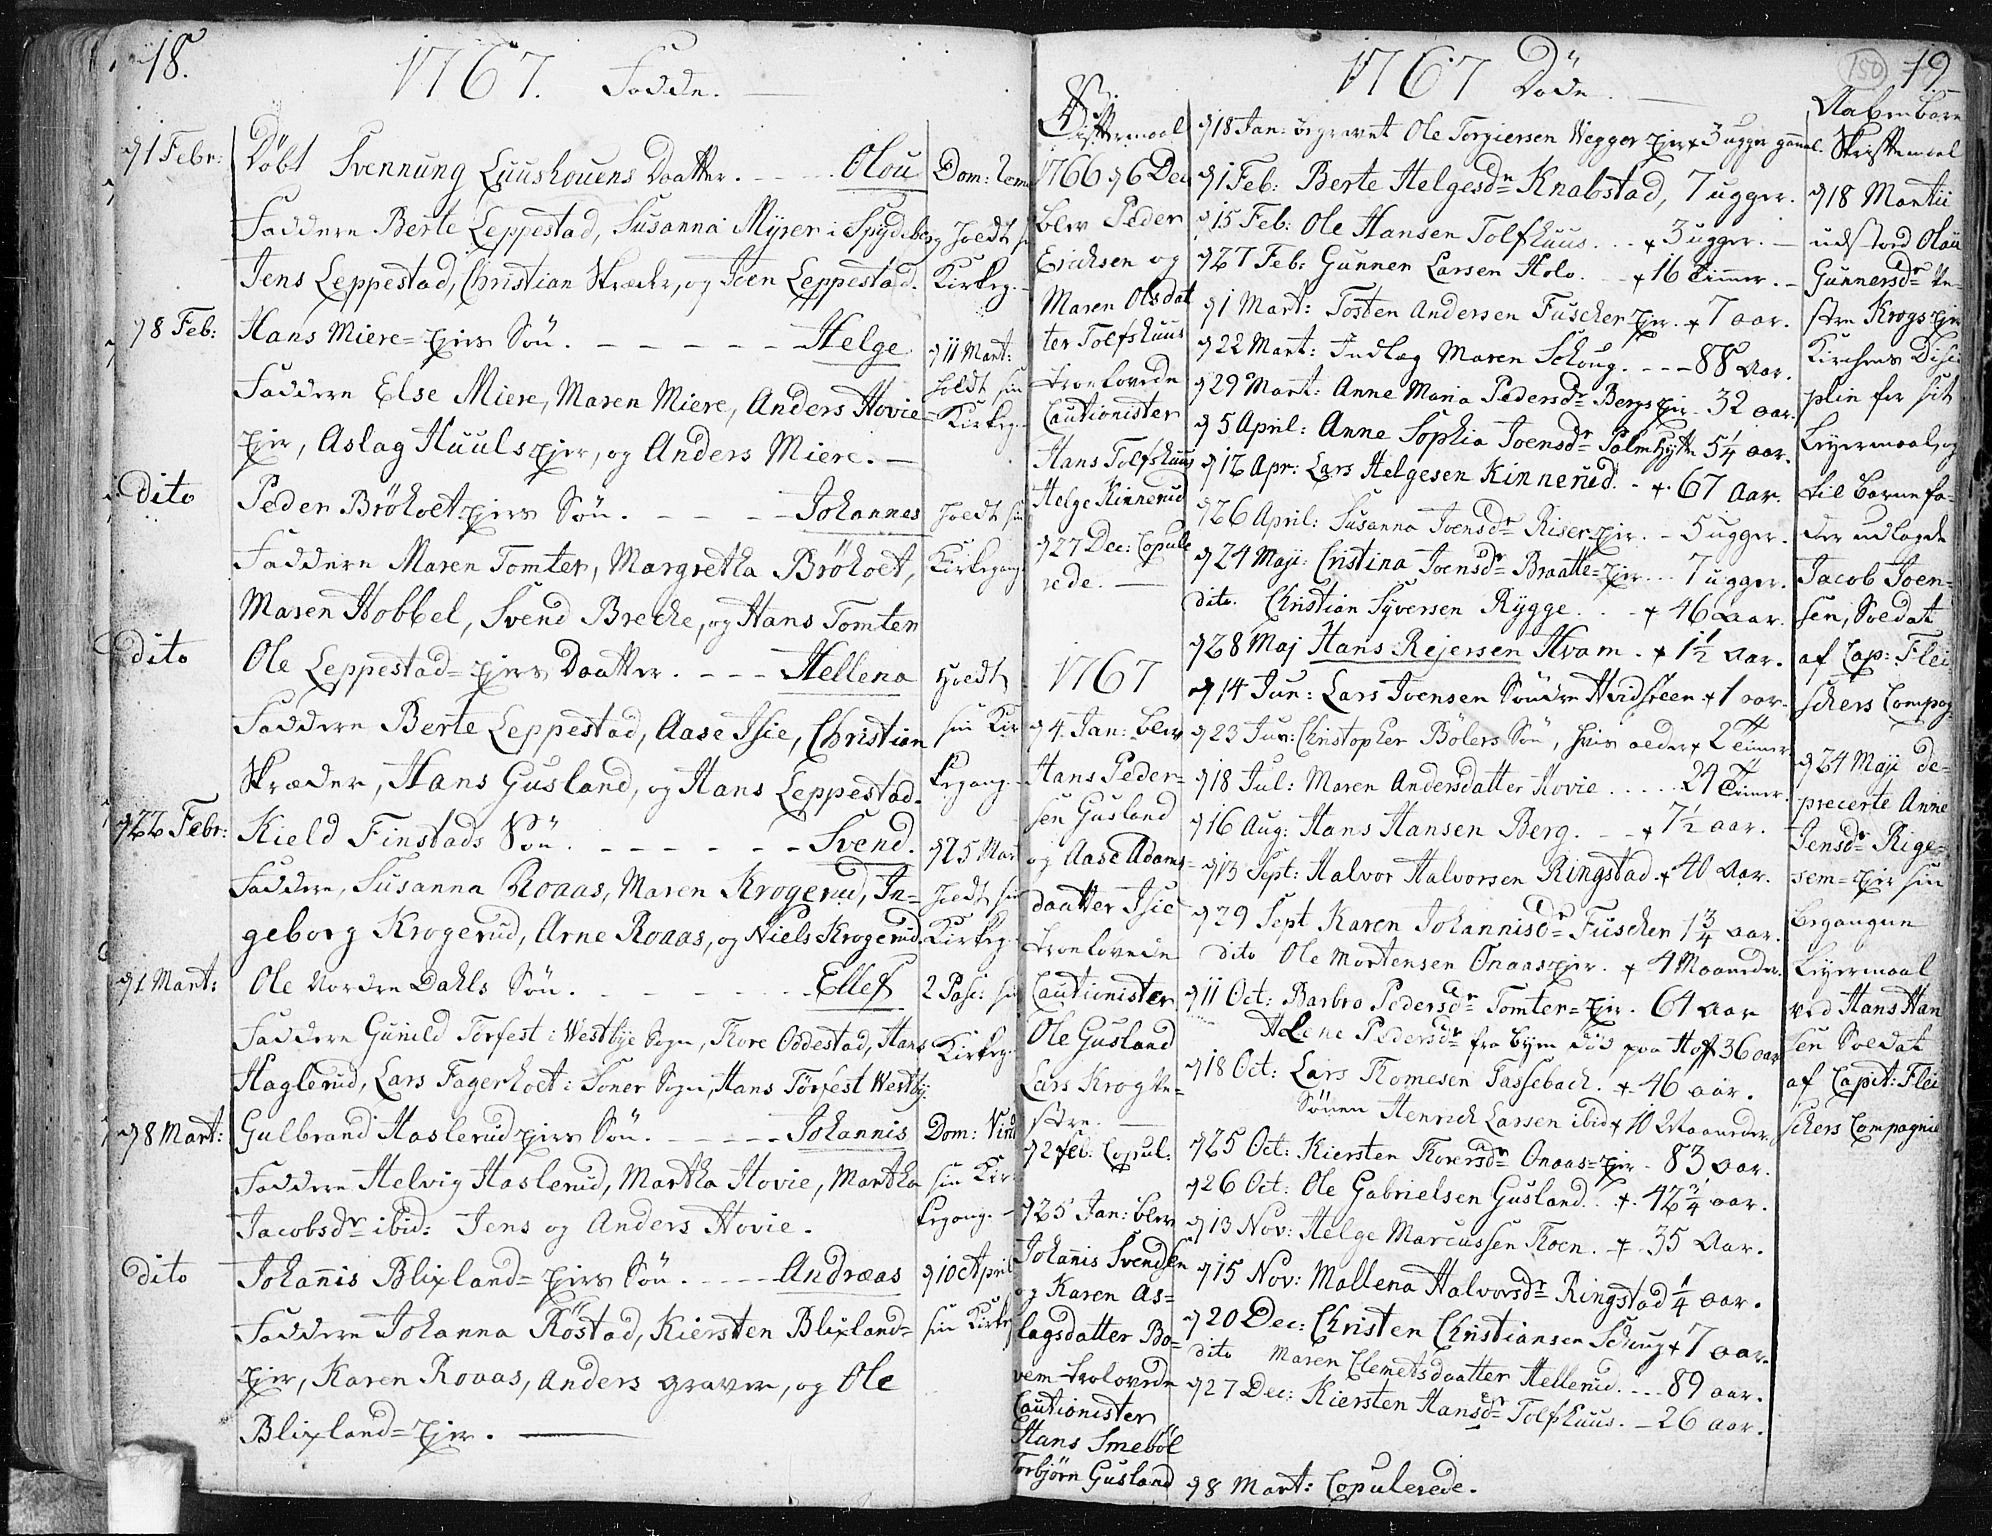 18.
1767. Fødde.
d 1 Febr:
Döbt Svennung Luushouens Daatter. - - - Olou
Dom:
Faddere Berte Leppestad, Susanna Myrer i Spydeberg
Holdt sin
Jens Leppestad, Christian Skræder, og Joen Leppestad.
Kirkeg.
d 8 Feb:
Hans Miere= Sön. - - - - - Helge
d 11 Mart:
holdt sin
Faddere Else Miere, Maren Miere, Anders Hovie=
Kirkeg.
Aslag Huuls og Anders Miere.
dito
Peder Bröhoet Sön. - - - - Johannes
Holdt sin
Faddere Maren Tomter, Margretha Bröhoet,
Kirkegang
Maren Hobbel, Svend Breche, og Hans Tomter
dito
Ole Leppestad= Daatter. - - - Hellena
Holdt
Faddere Berte Leppestad, Aase Isie, Christian
sin Kir
Skræder, Hans Gusland, og Hans Leppestad.
kegang.
d 22 Febr:
Kield Finstads Sön. - - - - - - Svend.
d 25 Mar
Faddere, Susanna Roaas, Maren Krogerud, In=
Holdt sin
geborg Krogerud, Arne Roaas, og Niels Krogerud.
Kirkeg.
d 1 Mart:
Ole Nordre Dahls Sön. - - - - - Ellef
2 Pasc:
Faddere Gunild Torfest i Westbye Sogn, Tore Oddestad, Hans
Kirkeg.
Haglerud, Lars Fagerhoet i Soner Sogn, Hans Törfest Westby.
d 8 Mart:
Gulbrand Haslerud Sön. - - - - - Johannis
Dom:
Faddere Helvig Haslerud, Martha Hovie, Martha
sin Kir=
Jacobsdr ibid: Jens og Anders Hovie.
kegang.
dito
Johannis Blixland= Sön. - - - - Andreas
d 10 April
Faddere Johanna Röstad, Kiersten Blixland=
sin Kirkeg
Karen Roaas, Anders Graver, og Ole
Blixland=
1766 d 6 Dec
blev Peder
Erichsen og
Maren Olsdat
ter Tolfshuus
troelovede
Cautionister
Hans Tolfshuus
Helge Kinnerud
d 27 Dec: Copule
rede.
1767
d 4 Jan: blev
Hans Peder=
sen Gusland
og Aase Adams=
daatter Isie
troelovede
Cautionister
Ole Gusland
Lars Krog Ve=
stre.
d 2 feb: Copul:
d 25 Jan: blev
Johannis Svendsen
og Karen As=
lagsdatter Bo=
vem trolovede
Cautionister
Hans Smeböl
Torbjörn Gusland
150
19
1767 Döde.
d 18 Jan: begravet Ole Torgiersen Wegger 3 ugger gamel.
d 1 Feb: Berte Helgesdr Knabstad, 7 ugger.
d 15 Feb: Ole Hansen Tolfhuus. - - + 3 ugger.
d 27 Feb: Gunner Larsen Holo. - + 16 Timer.
d 1 Mart: Tosten Andersen Fuscher + 7 aar.
d 22 Mart: Indlag Maren Schoug. - - - 88 Aar.
d 29 Mart: Anne Maria Pedersdr Bergs 32 aar.
d 5 April: Anne Sophia Joensdr Palmhytte 5¼ aar.
d 12 Apr: Lars Helgesen Kinnerud. - + 67 Aar.
d 26 April: Susanna Joensdr Riser - 5 ugger.
d 24 Maji: Cristina Joensdr Braatte= - 7 ugger.
dito. Christian Syversen Rygge. - + 46 aar.
d 28 Maj Hans Rejersen Hvam. + 1½ Aar.
d 14 Jun: Lars Joensen Söndre Hvidsteen + 1 aar.
d 23 Jun: Christopher Bölers Sön, hvis alder + 2 Timer
d 18 Jul: Maren Andersdatter Hovie. . . . . 24 Timer.
d 16 Aug: Hans Hansen Berg. - - + 7½ aar.
d 13 Sept: Halvor Halvorsen Ringstad + 40 Aar.
d 29 Sept Karen Johannisdr Fuscher 1¾ aar.
dito Ole Mortensen Onaas + 4 Maaneder.
d 11 Oct: Barbro Pedersdr Tomter= 61 Aar
Helene Pedersdr fra Byen död paa Hoff 36 aar
d 18 Oct: Lars Tomesen Tassebach. + 46 aar.
Sönen Henrich Larsen ibid + 10 Maaneder
d 25 Oct: Kiersten Torersdr Onaas= 83 aar.
d 26 Oct: Ole Gabrielsen Gusland. + 42¾ aar.
d 13 Nov: Helge Marcussen Toen. + 35 Aar.
d 15 Nov: Mallena Halvorsdr Ringstad ¼ aar.
d 20 Dec: Christen Christiansen Schoug + 7 aar.
dito Maren Clemetsdaatter Hellerud. - - - 89 aar.
d 27 Dec: Kiersten Hansdr Tolfhuus. - 26 aar.
d 8 Mart: Copulerede.
Aabenbare
Skriftemaal
d 18 Martii
udstod Olou
Gunnersdr Ve=
stre Krogs
Kirchens Disci
plin for sit
Leyermaal, og
til Barnefa=
der udlagde
Jacob Joen=
sen, Soldat
af Cap: Flei
schers Compag:
d 24 Maji de=
precerte Anne
Jensdr Rige=
sem= sin
begangne
Leyermaal
ved Hans Han
sen Soldat
af Capit: Flei
schers Compagnie